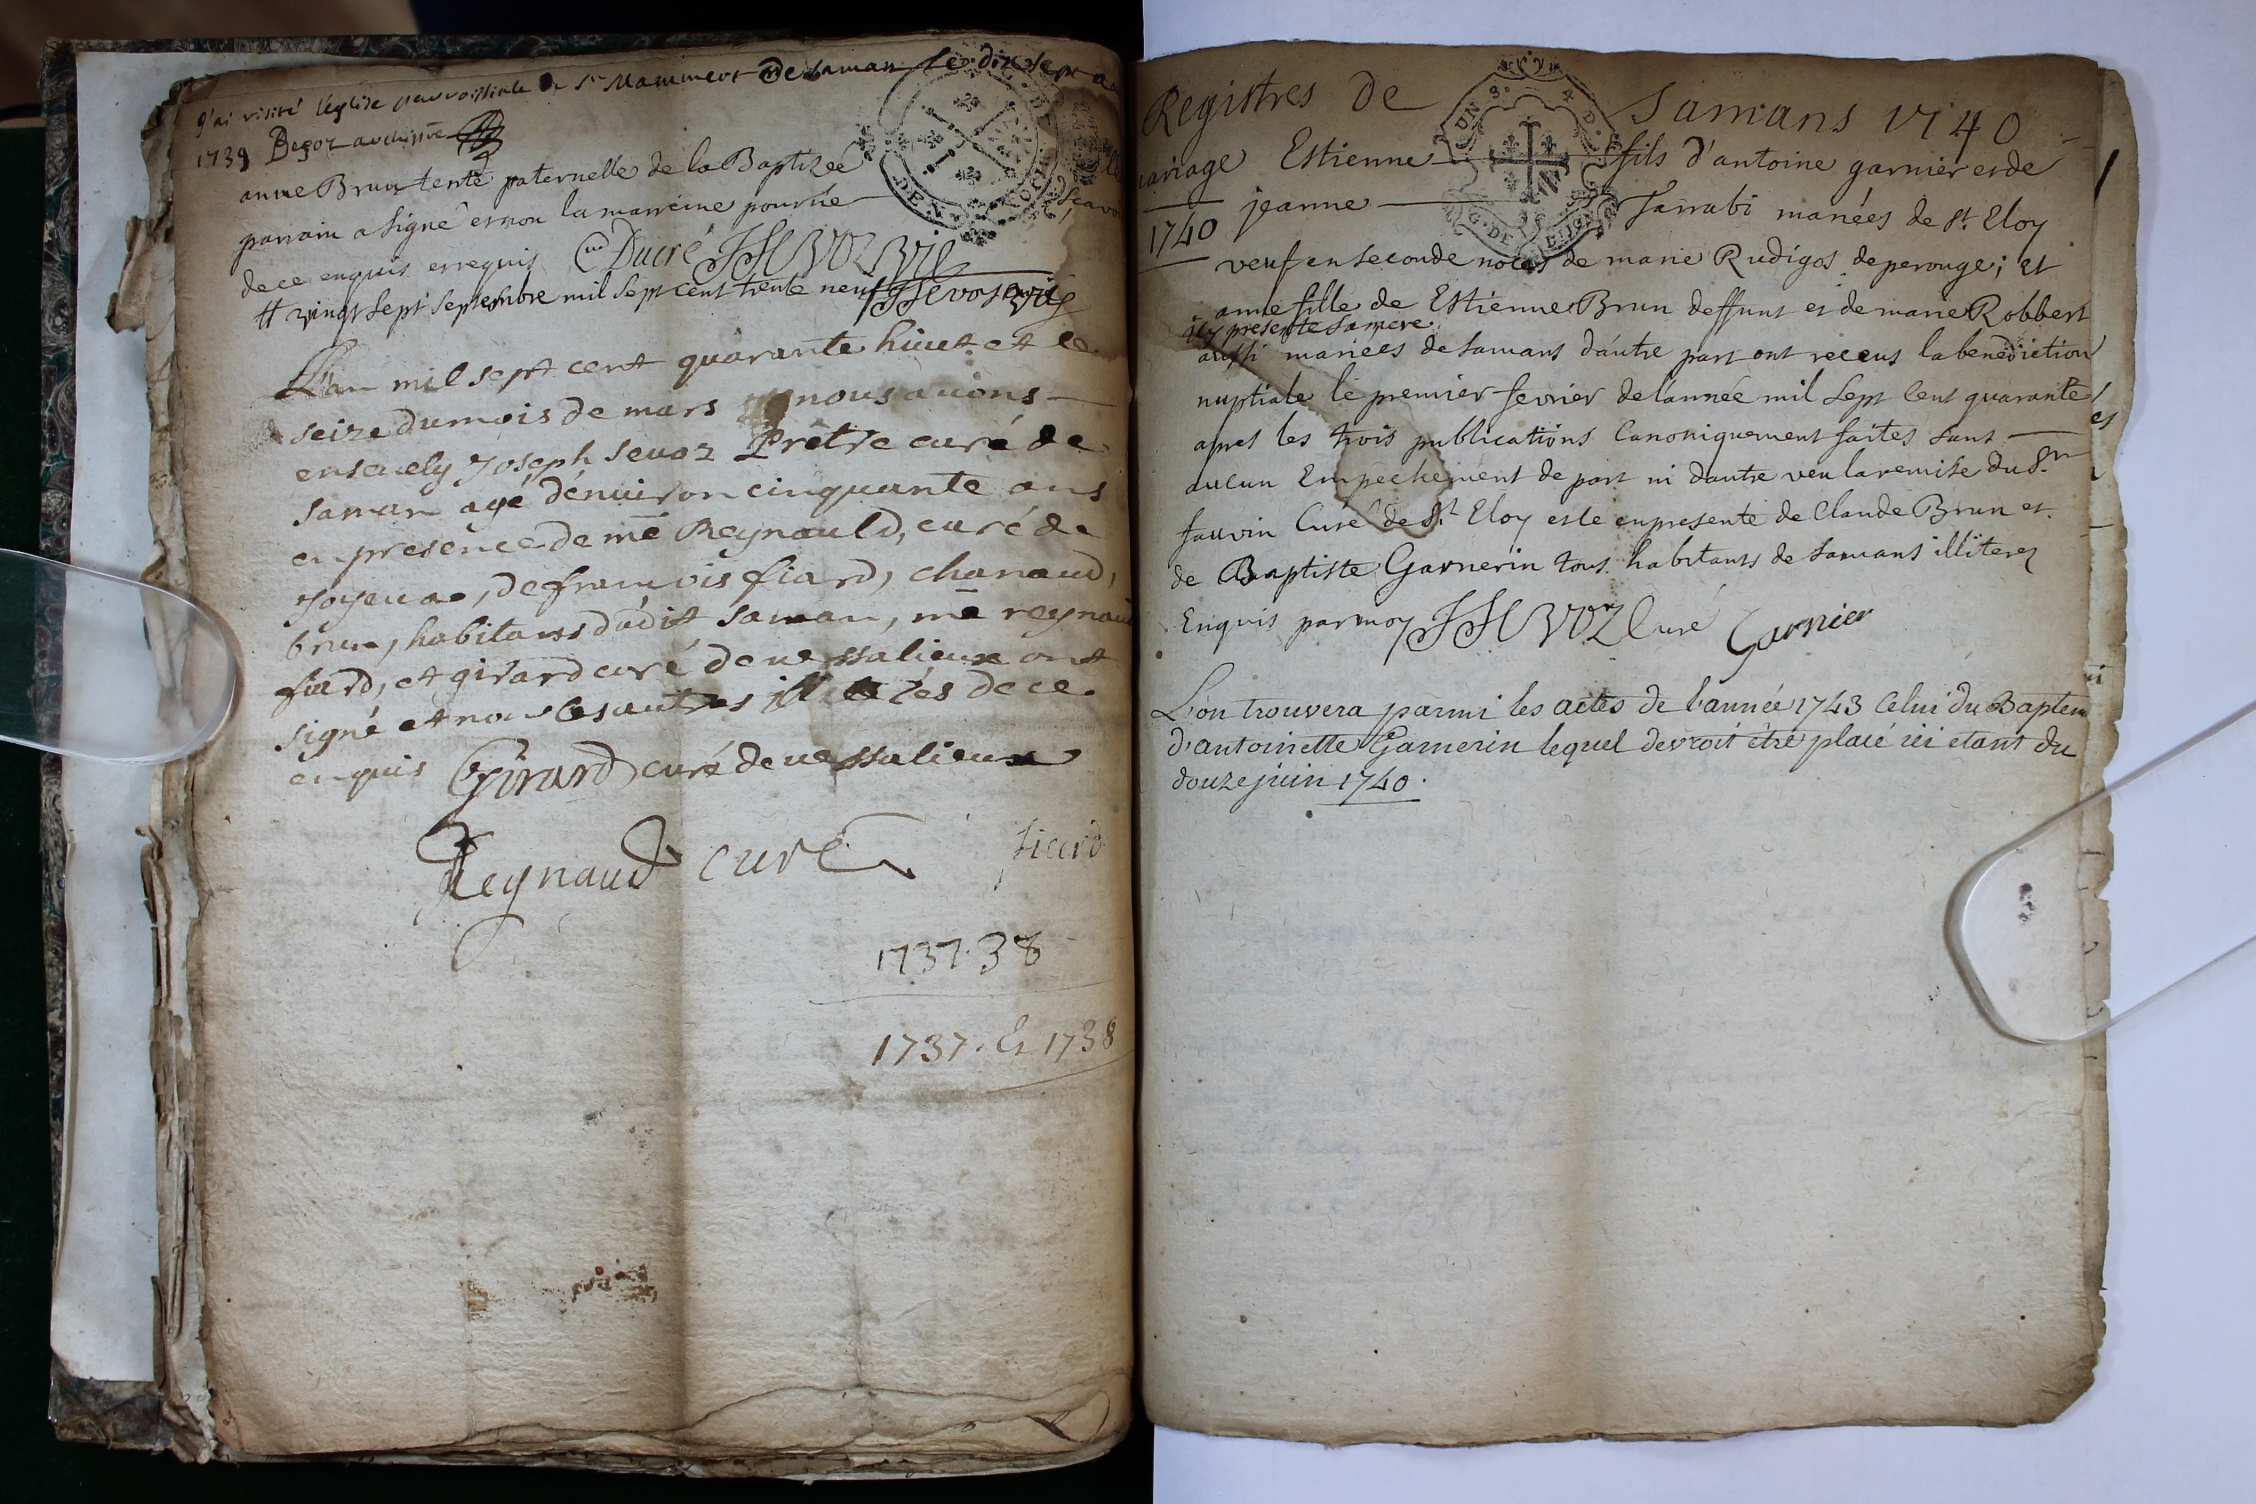 J'ai visité l'église parroissiale de St Mammert de Saman le dix sept a
1739 Begoz archiprê
anne Brun tente paternelle de la Baptizeé
parrain a signé et non la marreine pour né
de ce enquis et requis Ducré JH SEVOZ
tt vingt sept septembre mil sept cent trente neuf JH Sevoz
L'an mil sept cent quarante huict et le
seize du mois de mars nous avons
ensevely Joseph sevoz Prêtre curé de
saman agé dénviron cinquante ans
en presence de mre Reynauld, curé de
Joyeux, de francois fiard, chanaud,
brun, habitans dudit saman, mre reynaud
fiard, et girard curé de versalieux ont
signé et non les autres illiterés de ce
enquis Girard curé de versalieux
Reynaud curé fiard
1737. 38
1737. Et 1738
Registres de Samans 1740
mariage Estienne fils d'antoine garnier et de
1740 jeanne Jarrabi mariées de St Eloy
veuf en seconde noces de marie Rudigos de perouge; et
anne fille de Estienne Brun deffunt et de marie Robbert
icy presente sa mere
aussi mariées de samans d'autre part ont receus la benediction
nuptiale le premier fevrier de l'année mil sept cent quarante
apres les trois publications Canoniquement faites sans
aucun Empechement de part ni d'autre veu la remise du Sr
fauvin Curé de St Eloy et le en presente de Claude Brun et
de Baptiste Garnerin tous habitants de samans illiterez
Enquis par moy JH SEVOZ Curé Garnier
L'on trouvera parmi les actes de l'année 1743 Celui du Baptem
d'antoinette Garnerin lequel devroit être placé ici etant du
douze juin 1740.